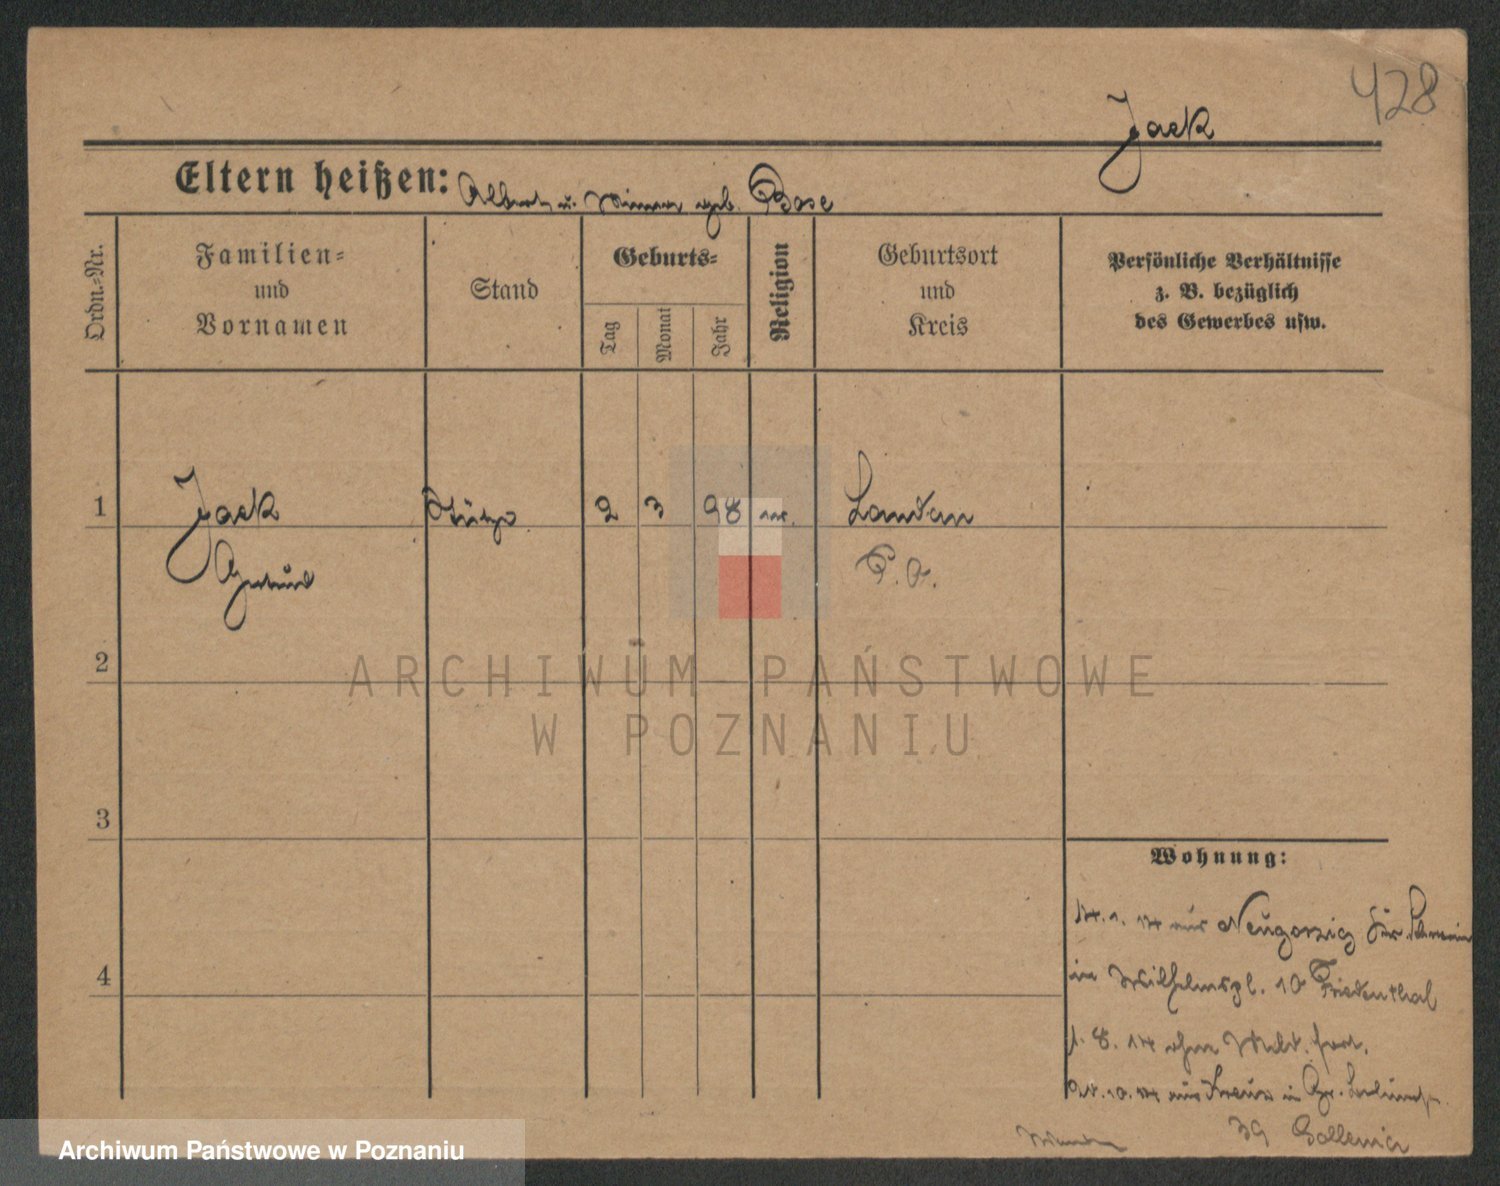 428
Jack
Eltern heißen: Albert u. geb. Bose
Ordn.-Nr.
Familien-
und
Vornamen
Stand
Geburts-
Tag
Monat
Jahr
Religion
Geburtsort
und
Kreis
Persönliche Verhältnisse
z. B. bezüglich
des Gewerbes usw.
1
Jack
Stütze
2
3
98
Landau
Gertrud
2
3
4
Wohnung:
aus Neugorzig
in Wilhelmspl. 10 Friedenthal
8. 14 ohne
10. 14 aus in Gr.
39
ARCHIWUM PAŃSTWOWE
W POZNANIU
Archiwum Państwowe w Poznaniu